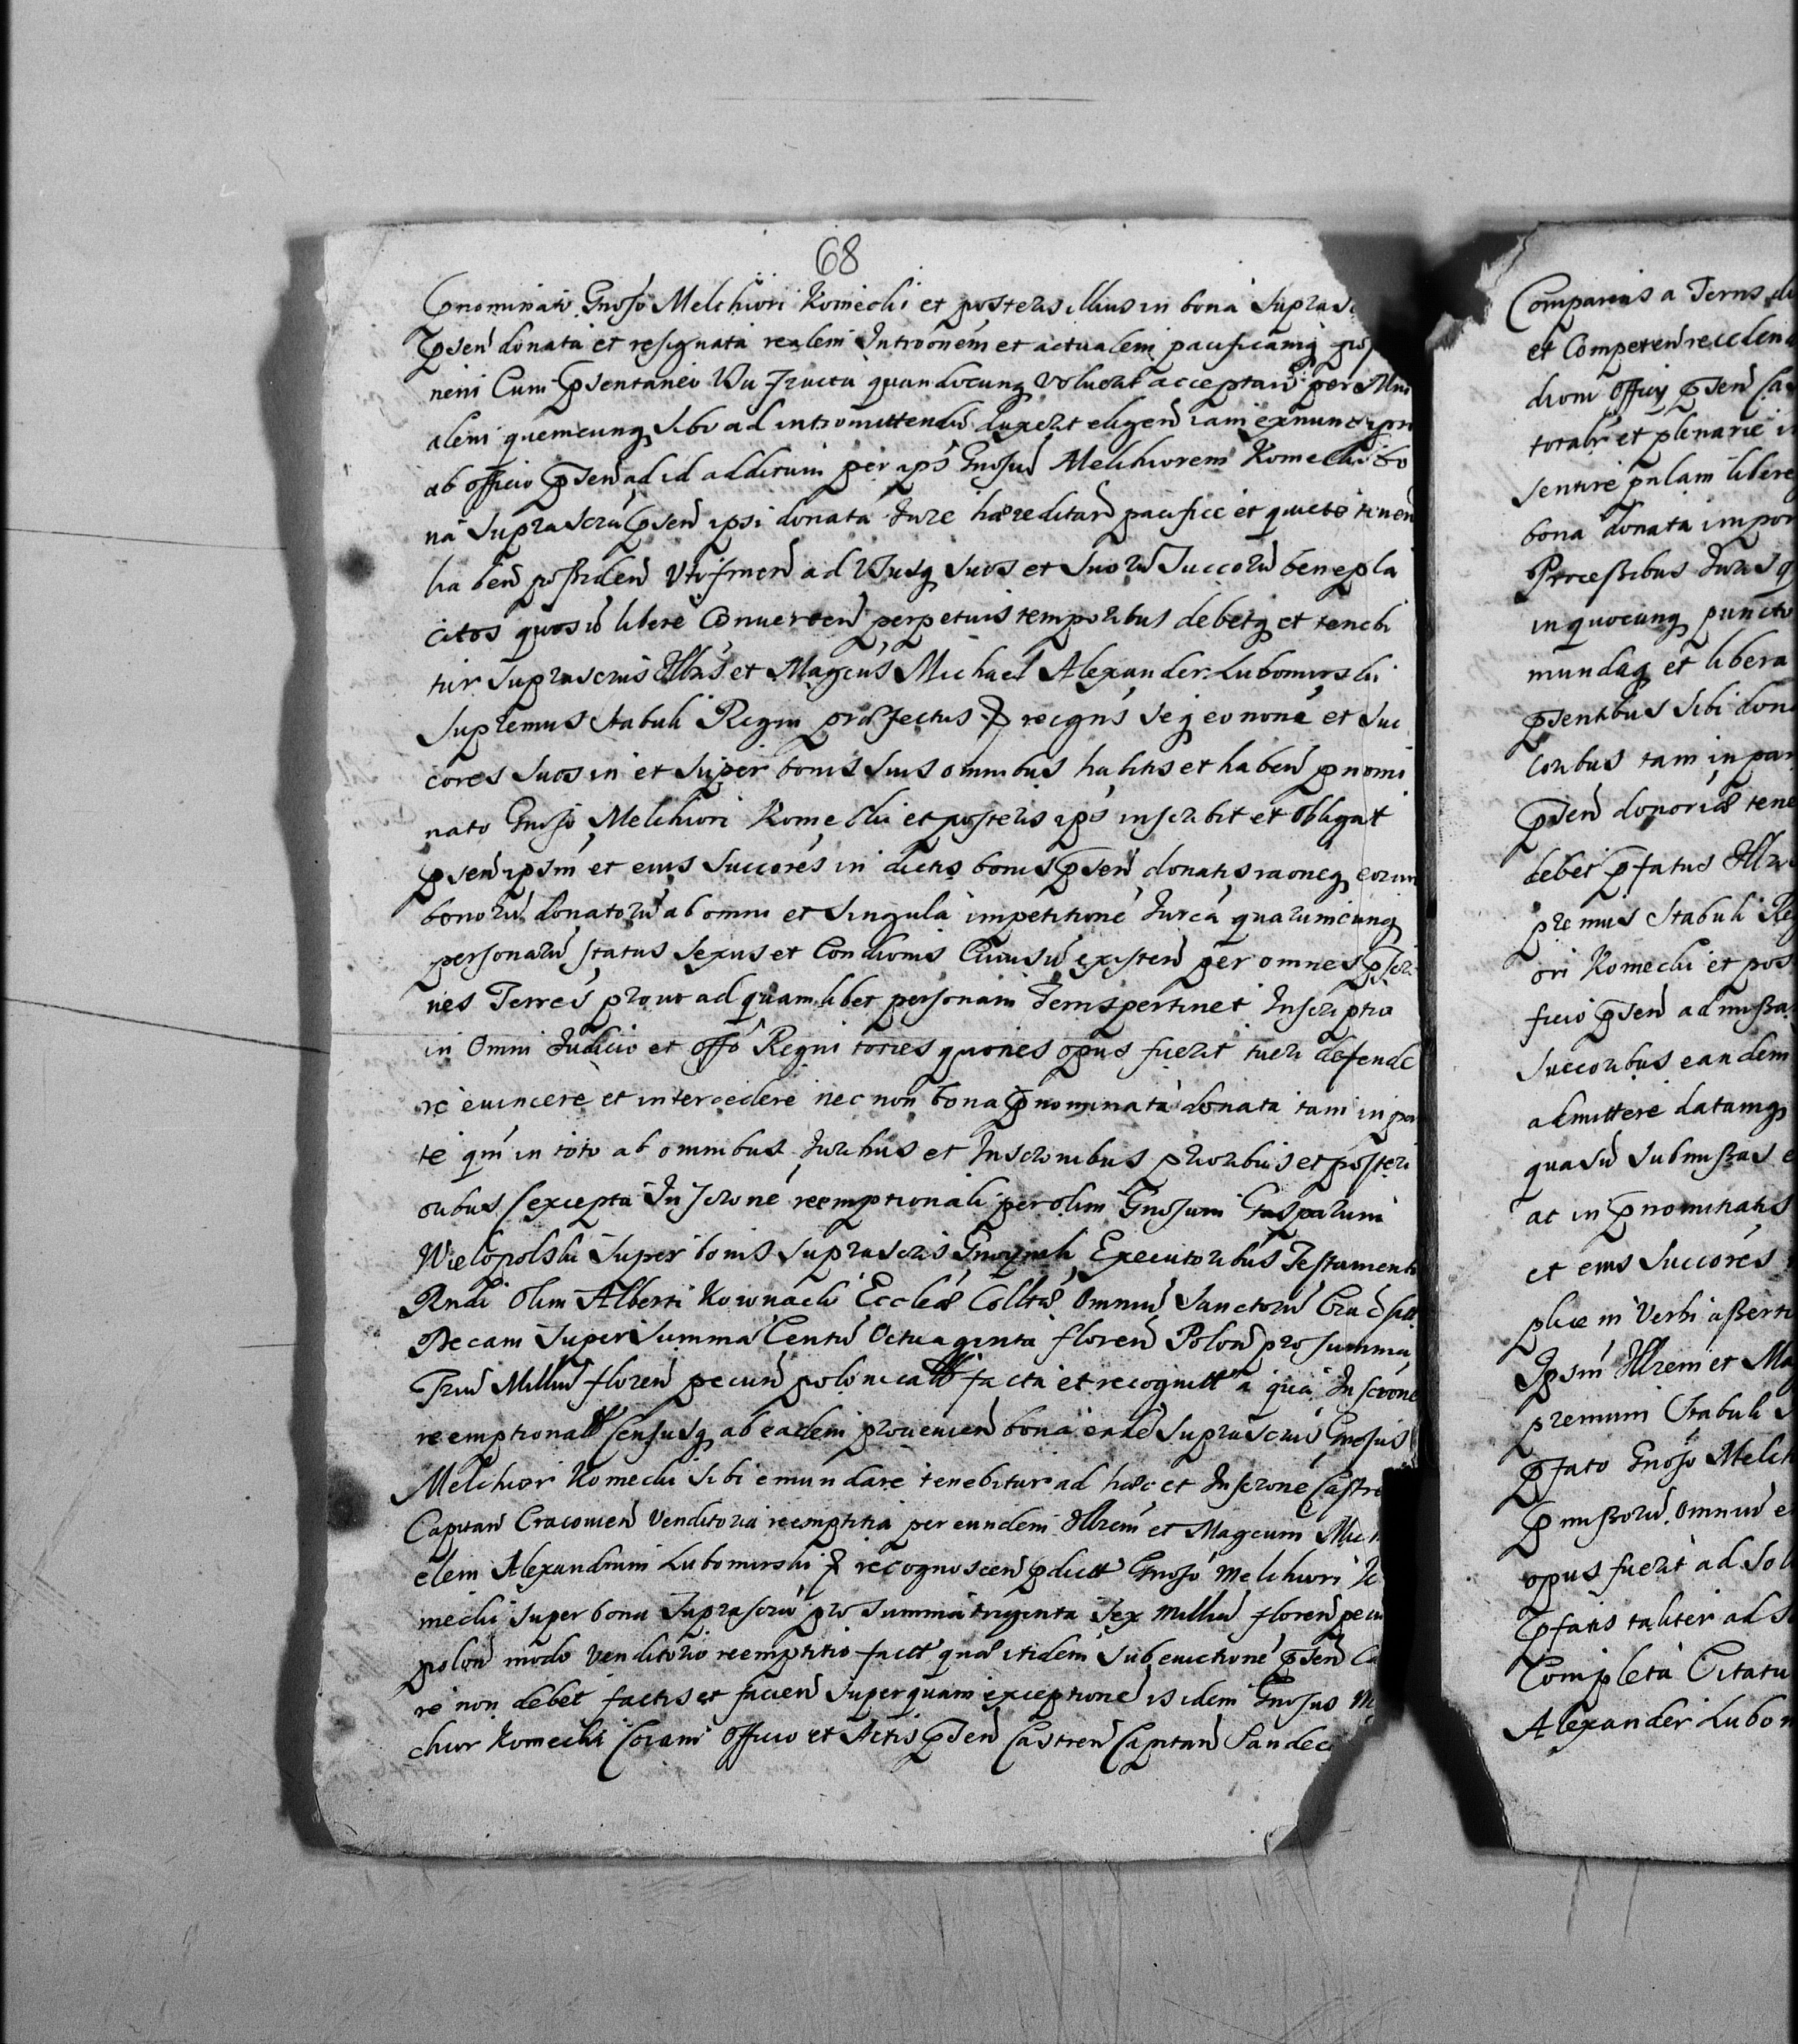 68
Pnominato Gnoso Melchiori Komecki et posteris illius in bona suprasc
Psen donata et resignata realem Intromonem et actualem pacificamq pos
nem Cum Psentaneo Usu Fructu quandocunq voluerit acceptan per Mini
alem quemcunq sibi ad intromittendu duxerit eligen iam exnunc
ab officio Psen ad id additum per ips Gnosum Melchiorem Komecki bo
na suprascra Psen ipsi donata Jure hæreditar pacifice et quiete tenen
haben possiden utifruen ad Ususq suos et suoru Succoru benepla
citos quosvis libere Convertend perpetuis temporibus debetq et tenebi
tur suprascrus Illris et Magcus Michael Alexander Lubomirski
Supremus Stabuli Regni præfectus P recgns seq eo none et suc
cores suos in et super bonis suis omnibus habitis et haben pnomi
nato Gnoso Melchiori Komecki et posteris ips inscribit et obligat
psen ipsm et eius Succores in dictis bonis Psen donatis raoneq eorum
bonoru donatoru ab omni et singula impetitione Jurca quarumcunq
personaru status sexus et Condionis Cuiusvis existen per omnes pscr
nes Terres prout ad quamlibet personam Terris pertinet Inscriptio
in Omni Judicio et offo Regni toties quoties opus fuerit tueri defende
re evincere et intercedere nec non bona Pnominata donata tam in par
te qm in toto ab omnibus Juribus et Inscronibus prioribus et posteri
oribus (excepta Inscrone reemptionali per olim Gnosum Gasparum
Wielopolski super bonis suprascris Executoribus Testamenti
Rndi Olim Alberti Kownacki Eccleæ Colltæ Omniu Sanctoru Crac
Decani super summa Centu Octuaginta floren Polon pro summa
Triu Milliu floren pecun polonicall facta et recognitt a qua Inscrone
reemptionall censusq ab eadem provenien bona eade suprascrus Gnosus
Melchior Komecki sibi emundare tenebitur ad hæc et Inscrone Castre
Capitan Cracovien Venditoria reemptitia per eundem Illrem et Magcum Mich
elem Alexandrum Lubomirski P recognoscen pdictt Gnoso Melchiori K
mecki super bona suprascra pro summa triginta sex milliu floren pecu
polon modo venditorio reemptitio factt quæ itidem sub evictione Psen Ca
re non debet factis et facien super quam exceptione is idem Gnosus M
chior Komecki Coram officio et Actis Psen Castren Capitan Sandec
Comparens a Terris di
et Competen recedend
dioni officij Psen Ca
totalr et plenarie i
sentire pnlam libere
bona donata impor
Processibus Jurisq
in quocunq puncto
mundaq et libera
psentibus sibi dona
coribus tam in par
Psen donoriæ tene
debet Pfatus Illris
premus Stabuli Reg
ori Komecki et pos
ficio Psen admissa
Succoribus eandem
admittere datamq
quasvis submissas e
ac in Pnominatis
et eius Succores
plicem Verbi asserti
Ipsm Illrem et Ma
premum Stabuli
Pfato Gnoso Melch
Pmissoru Omniu e
opus fuerit ad sol
Pfatis taliter ad s
Completa Citatu
Alexander Lubom